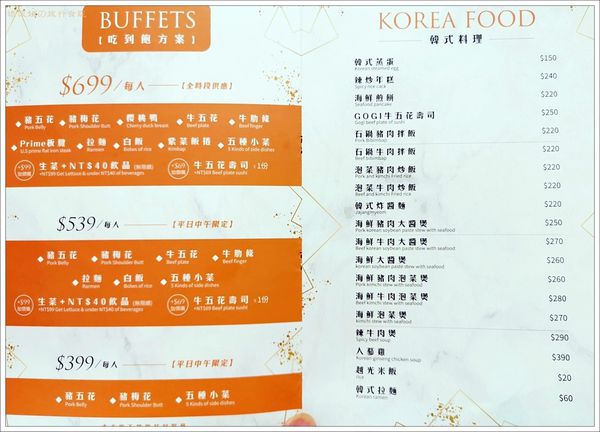 BUFFETS
【吃到飽方案】
$699/每人 【全時段供應】
豬五花 豬梅花 櫻桃鴨 牛五花 牛肋條
Pork Belly Pork Shoulder Butt Cherry duck breast Beef plate Beef finger
Prime板腱 拉麵 白飯 紫菜飯捲 五種小菜
U.S prime flat iron steak Ramen Bolws of rice Kimbap 5 Kinds of side dishes
+$99 加價購 生菜+NT$40飲品(無限續) +$69 加價購 牛五花壽司×1份
+NT$99 Get Lettuce & under NT$40 of beverages +NT$69 Beef plate sushi
$539/每人 【平日中午限定】
豬五花 豬梅花 牛五花 牛肋條
Pork Belly Pork Shoulder Butt Beef plate Beef finger
拉麵 白飯 五種小菜
Ramen Bolws of rice 5 Kinds of side dishes
+$99 加價購 生菜+NT$40飲品(無限續) +$69 加價購 牛五花壽司×1份
+NT$99 Get Lettuce & under NT$40 of beverages +NT$69 Beef plate sushi
$399/每人 【平日中午限定】
豬五花 豬梅花 五種小菜
Pork Belly Pork Shoulder Butt 5 Kinds of side dishes
KOREA FOOD
韓式料理
韓式蒸蛋 $150
Korean steamed egg
辣炒年糕 $240
Spicy rice cack
海鮮煎餅 $220
Seafood pancake
GOGI牛五花壽司 $250
Gogi beef plate of sushi
石鍋豬肉拌飯 $220
Pork Bibimbap
石鍋牛肉拌飯 $220
Beef Bibimbap
泡菜豬肉炒飯 $220
Pork and kimchi Fried rice
泡菜牛肉炒飯 $220
Beef and kimchi Fried rice
韓式炸醬麵 $220
Jajangmyeon
海鮮豬肉大醬煲 $250
Pork korean soybean paste stew with seafood
海鮮牛肉大醬煲 $270
Beef korean soybean paste stew with seafood
海鮮大醬煲 $260
korean soybean paste stew with seafood
海鮮豬肉泡菜煲 $260
Pork kimchi stew with seafood
海鮮牛肉泡菜煲 $280
Beef kimchi stew with seafood
海鮮泡菜煲 $270
kimchi stew with seafood
辣牛肉煲 $290
Spicy beef soup
人蔘雞 $390
korean ginseng chicken soup
越光米飯 $20
rice
韓式拉麵 $60
Korean ramen